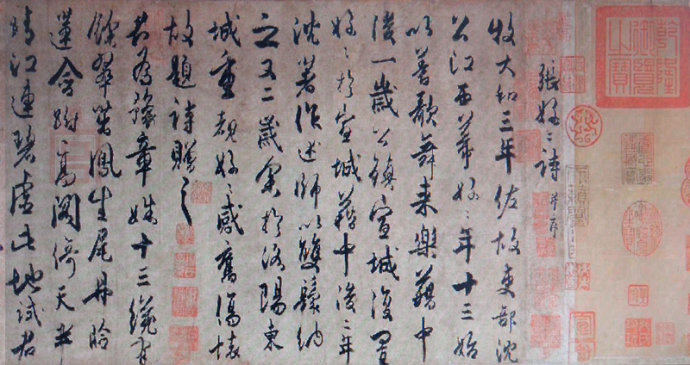 乾隆御覽之寶
張好〻詩并序
牧大和三年佐故吏部沈
公江西幕好〻年十三始
以善歌舞來樂藉中
後一歲公鎮宣城復置
好〻於宣城藉中後二年
沈著作述師以雙鬟納
之又二歲余於洛陽東
城重覩好〻感舊傷懷
故題詩贈之
君為豫章姝十三纔有
餘翠茁鳳生尾丹臉
蓮含跗高閣倚天半
晴江連碧虛此地試君